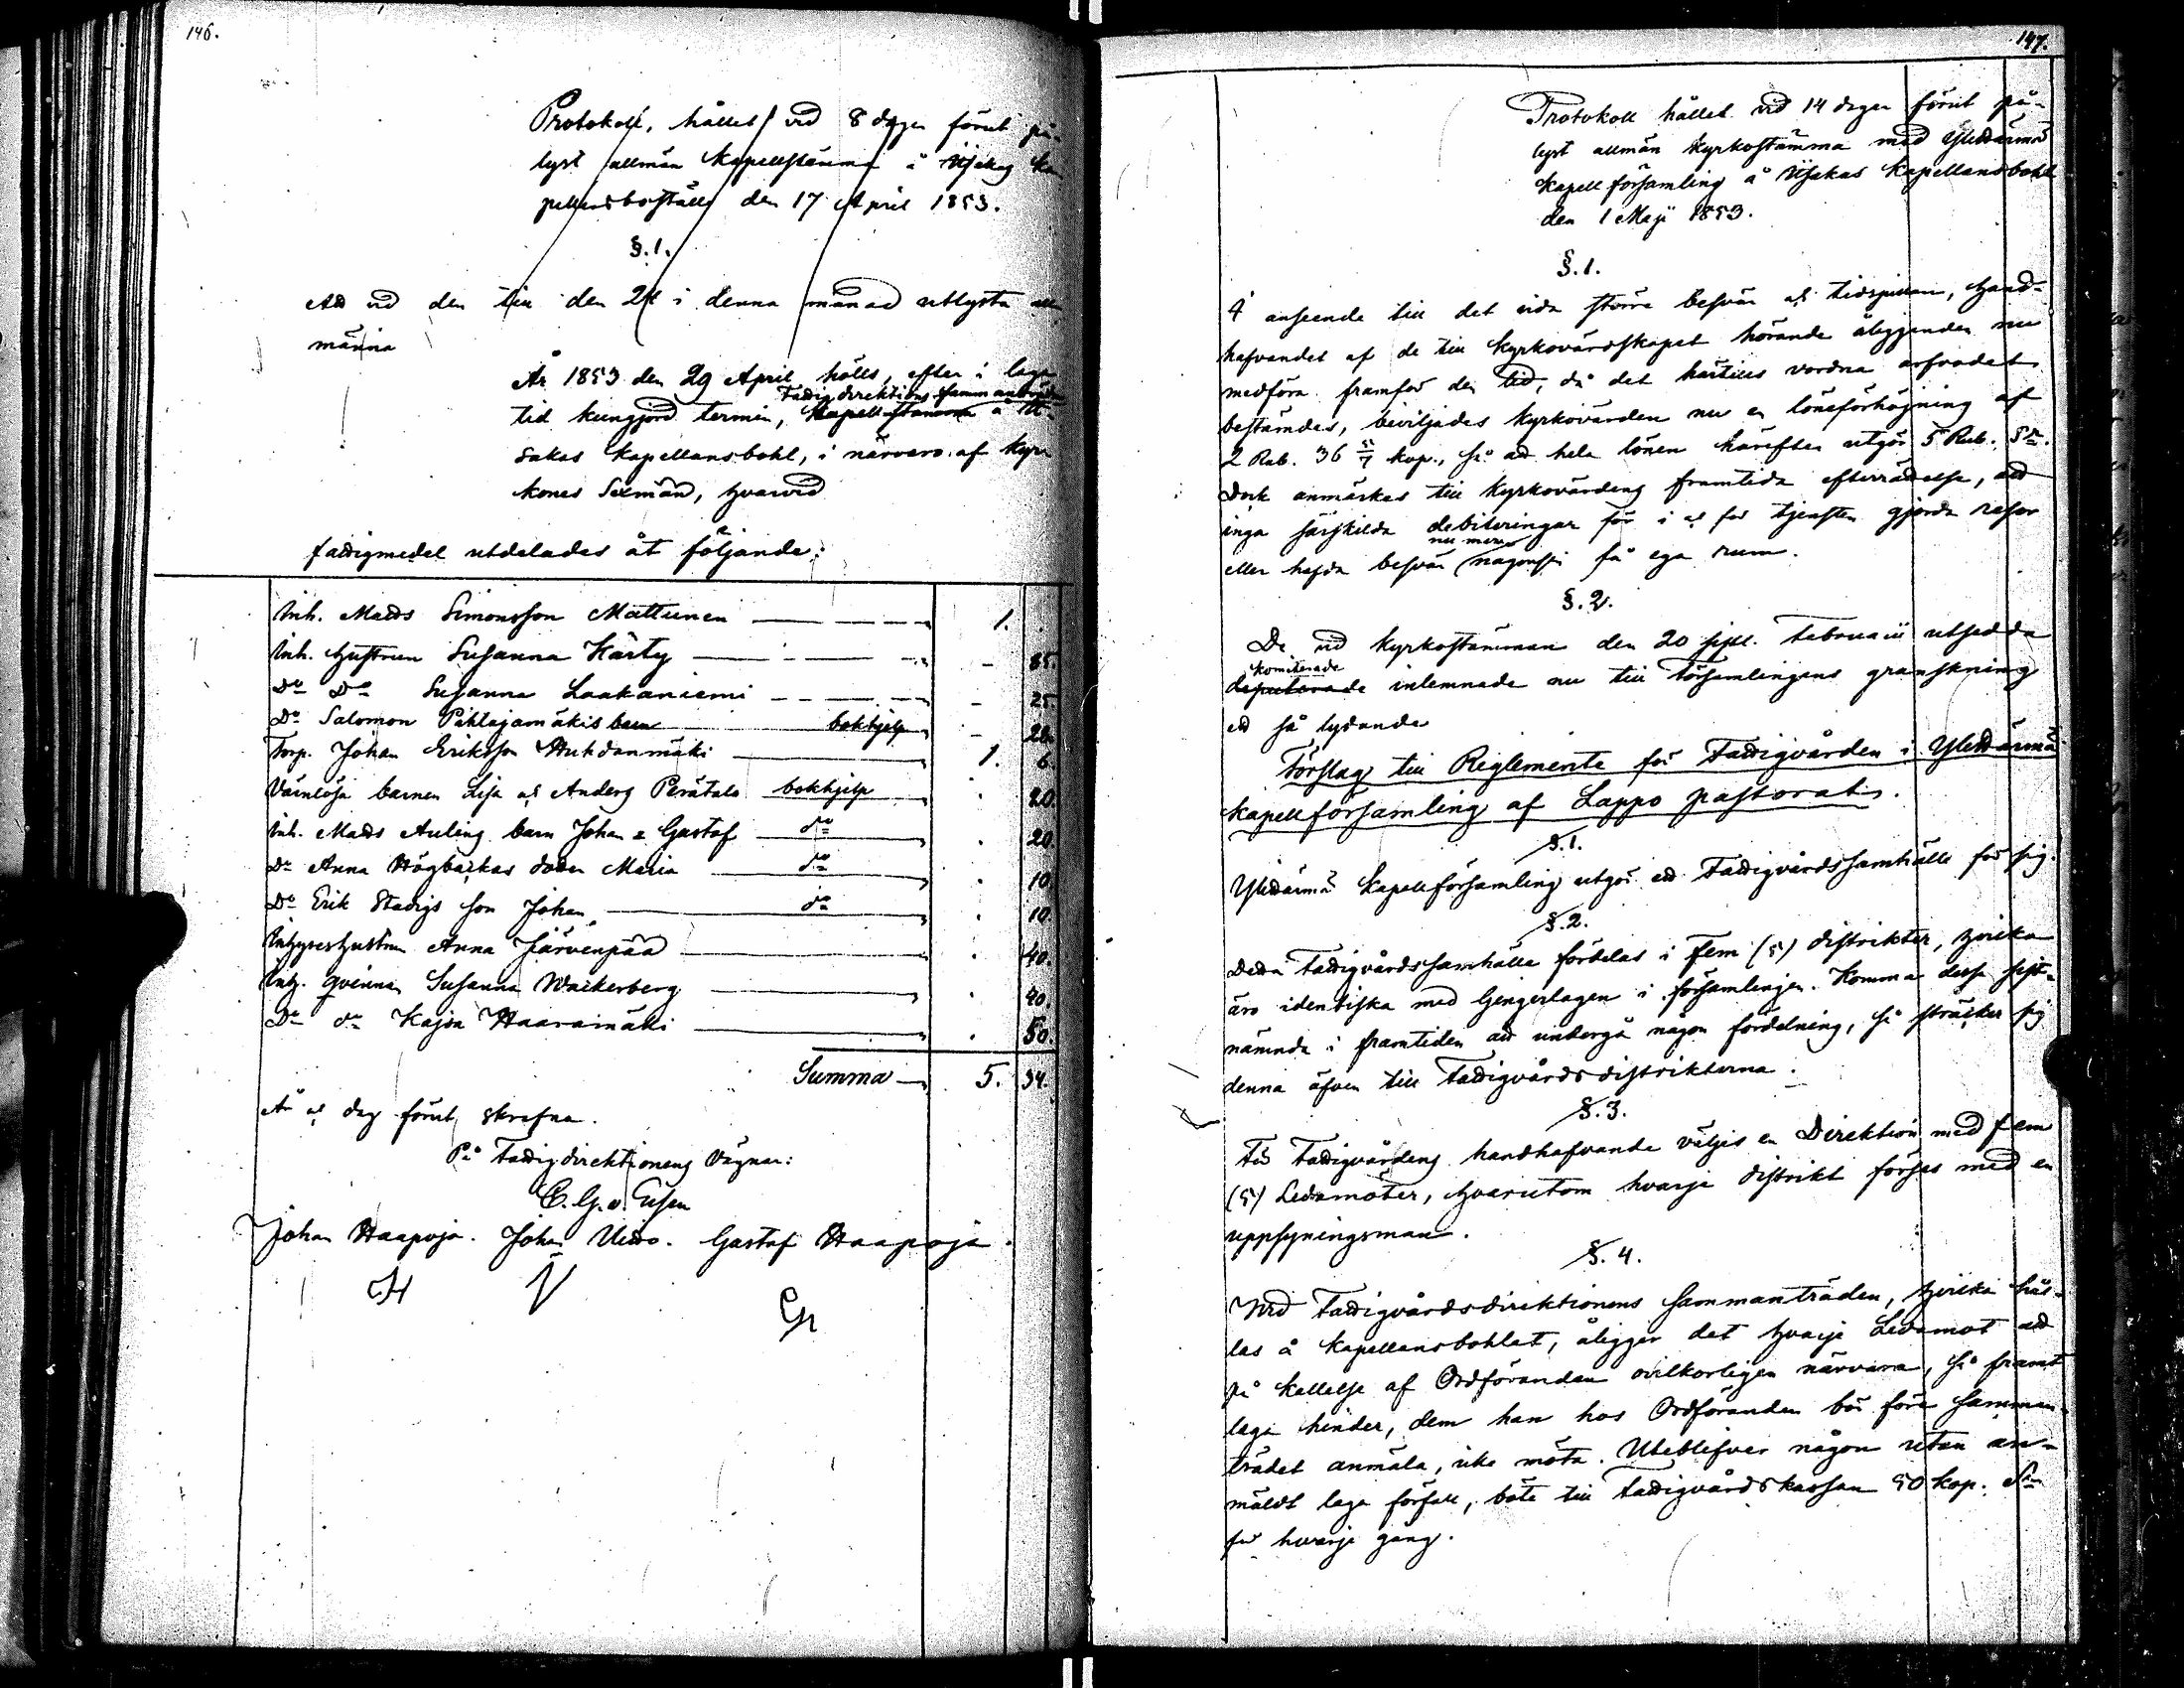 146.
Protokoll, hållet vid 8 dagar förut på-
lyst allmän Kapellstämma å Ujakas Ka
pellansboställe den 17 April 1853.
§.1.
Att vid den till den 24 i denna månad utlysta all
männa
År 1853 den 29 April hölls, efter i laga
Fattigdirektions sammanträde
tid kungjord termin, Kapellstämma å U-
sakas Kapellansbohl, i närvaro af Kyr
kones Sexmän, hvarvid
fattigmedel utdelades åt följande:
Inh. Matts Simonsson Mattunen 1.
Inh. hustrun Susanna Kärty - 85.
Do Do Susanna Laakaniemi - 25.
Do Salomon Pihlajamäkis barn bokhjelp - 28.
Torp. Johan Eriksson Huhdanmäki 1. 6.
Värnlösa barnen Lisa och Anders Perätalo bokhjelp . 20.
Inh. Matts Auling barn Johan & Gustaf do . 20.
Do Anna Högbackas dotter Maria do . 10.
Do Erik Stadigs son Johan do . 10.
Inhyseshustrun Anna Järvenpää . 40.
Inh. qvinnan Susanna Wackerberg . 40.
Do do Kajsa Haaramäki . 50.
Summa 5. 34.
År och dag förut skrefna.
På Fattigdirektionens Vägnar:
C. G. v. Essen
Johan Haapoja. Johan Uitto. Gustaf Haapoja.
JH V GH
147.
Protokoll hållet vid 14 dagar förut på-
lyst allmän Kyrkostämma med Ylihärmä
Kapellförsamling å Ujakas Kapellansbohl
den 1 Maji 1853.
§.1.
I anseende till det vida större besvär och tidspillan, hand-
hafvandet af de till Kyrkovärdskapet hörande åligganden nu
medföra framför den tid, då det härtills vordna arfvodet
bestämdes, beviljades Kyrkovärden nu en löneförhöjning af
2 Rub. 36 4/7 kop., så att hela lönen härefter utgör 5 Rub. Sr.
Dock anmärkes till Kyrkovärdens framtida efterrättelse, att
inga särskilda debiteringar för i och för tjensten gjorda resor
nu mera
eller hafda besvär någonsin få ega rum.
§.2.
De vid Kyrkostämman den 20 sistl. Februarii utsedda
Komiterade
deputerade inlemnade nu till Församlingens granskning
ett så lydande
Förslag till Reglemente för Fattigvården i Ylihärmä
Kapellförsamling af Lappo pastorat.
§.1.
Ylihärmä Kapellförsamling utgör ett Fattigvårdssamhälle för sig.
§.2.
Detta Fattigvårdssamhälle fördelas i Fem (5) distrikter, hvilka
äro identiska med Gengerlagen i församlingen. Komma dessa sist-
nämnda i framtiden att undergå någon fördelning, så sträcker sig
denna äfven till Fattigvårdsdistrikterna.
§.3.
För Fattigvårdens handhafvande väljes en Direktion med fem
(5) Ledamöter, hvarutom hvarje distrikt förses med en
uppsyningsman.
§.4.
Vid Fattigvårdsdirektionens Sammanträden, hvilka hål-
las å Kapellansbohlet, åligger det hvarje Ledamot att
på kallelse af Ordföranden ovilkorligen närvara, så framt
laga hinder, dem han hos Ordföranden bör före samman-
trädet anmäla, icke möta. Uteblifver någon utan an-
mäldt laga förfall, böte till Fattigvårdskassan 50 kop. Sr
för hvarje gång.